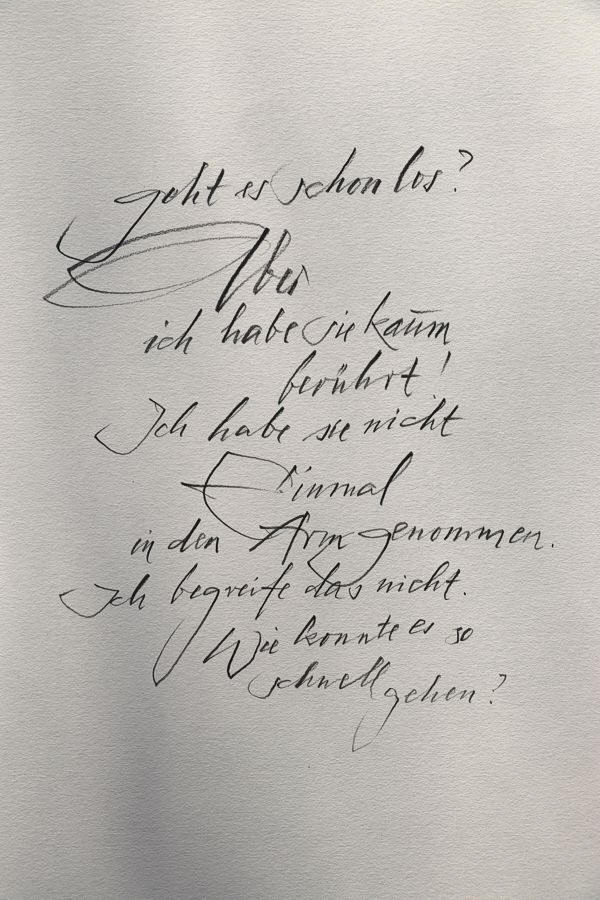 geht es schon los?
Aber
ich habe sie kaum
berührt!
Ich habe sie nicht
Einmal
in den Arm genommen.
Ich begreife das nicht.
Wie konnte es so
schnell gehen?